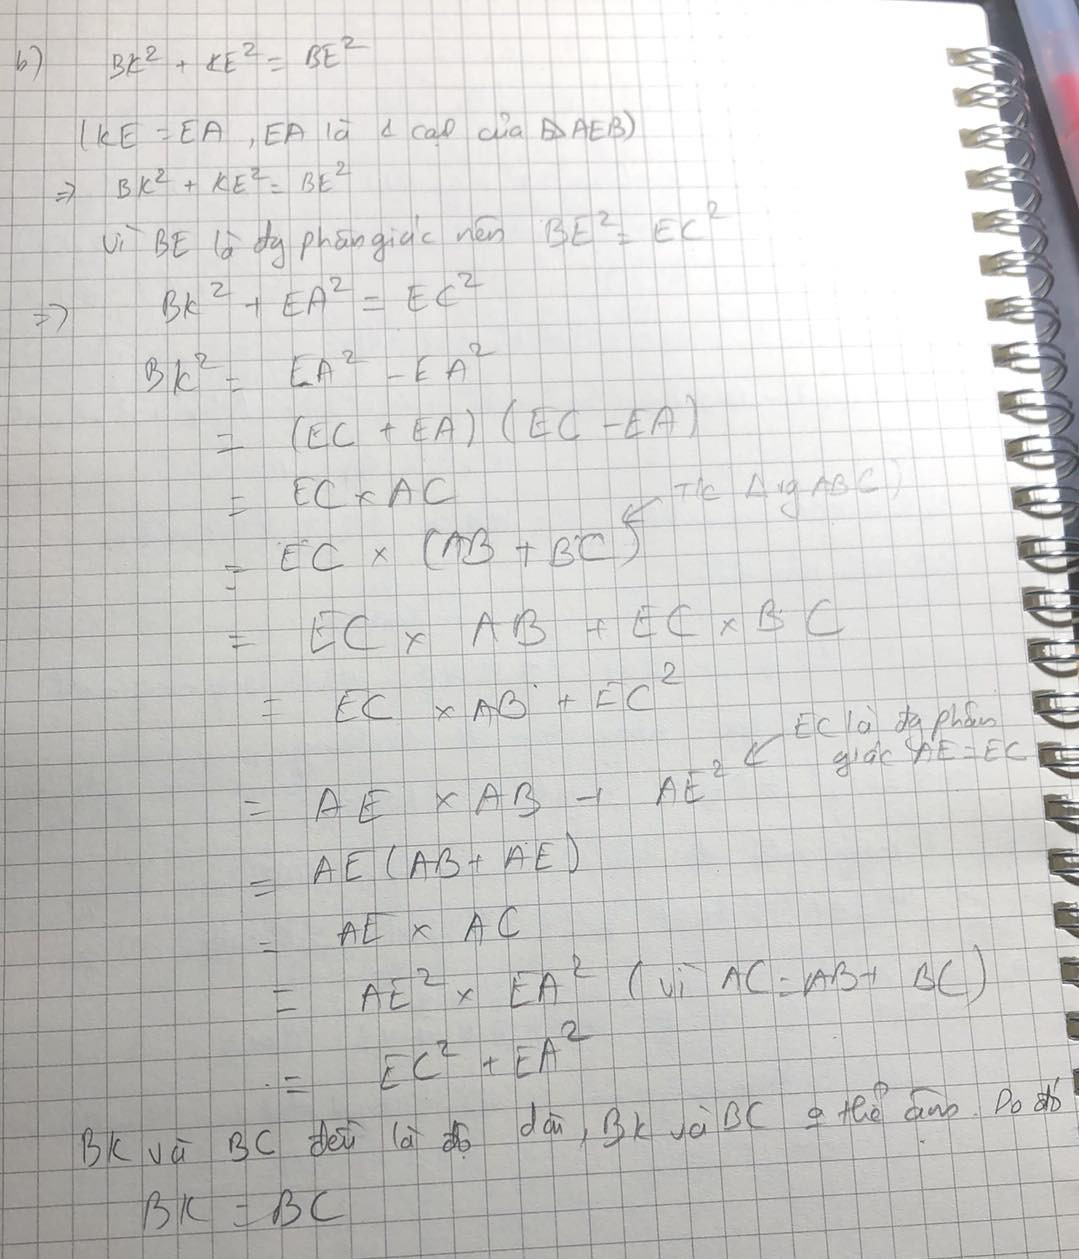 b) BK² + KE² = BE²
(KE = EA, EA là 1 cạp của ∆ AEB)
=> BK² + KE² = BE²
Vì BE là đg phân giác nên BE² = EC²
=> BK² + EA² = EC²
BK² = EA² - EA²
= (EC + EA) (EC - EA)
= EC × AC
T/c ∆ vg ABC)
= EC × (AB + BC)
= EC × AB + EC × BC
= EC × AB + EC²
EC là đg phân
giác AE = EC
= AE × AB + AE²
= AE (AB + AE)
= AE × AC
= AE² × EA² (vì AC = AB + BC)
= EC² + EA²
BK và BC đều là độ dài, BK và BC thể âm. Do đó
BK = BC